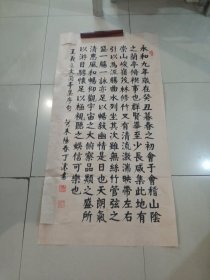 永和九年歲在癸丑暮春之初會于會稽山陰
之蘭亭脩禊事也群賢畢至少長咸集此地有
崇山峻嶺茂林修竹又有清流激湍映帶左右
引以為流觴曲水列坐其次雖無絲竹管弦之
盛一觴一詠亦足以暢敘幽情是日也天朗氣
清惠風和暢仰觀宇宙之大俯察品類之盛所
以游目騁懷足以極視聽之娛信可樂也
王羲之文蘭亭集序句 未陽春丁書